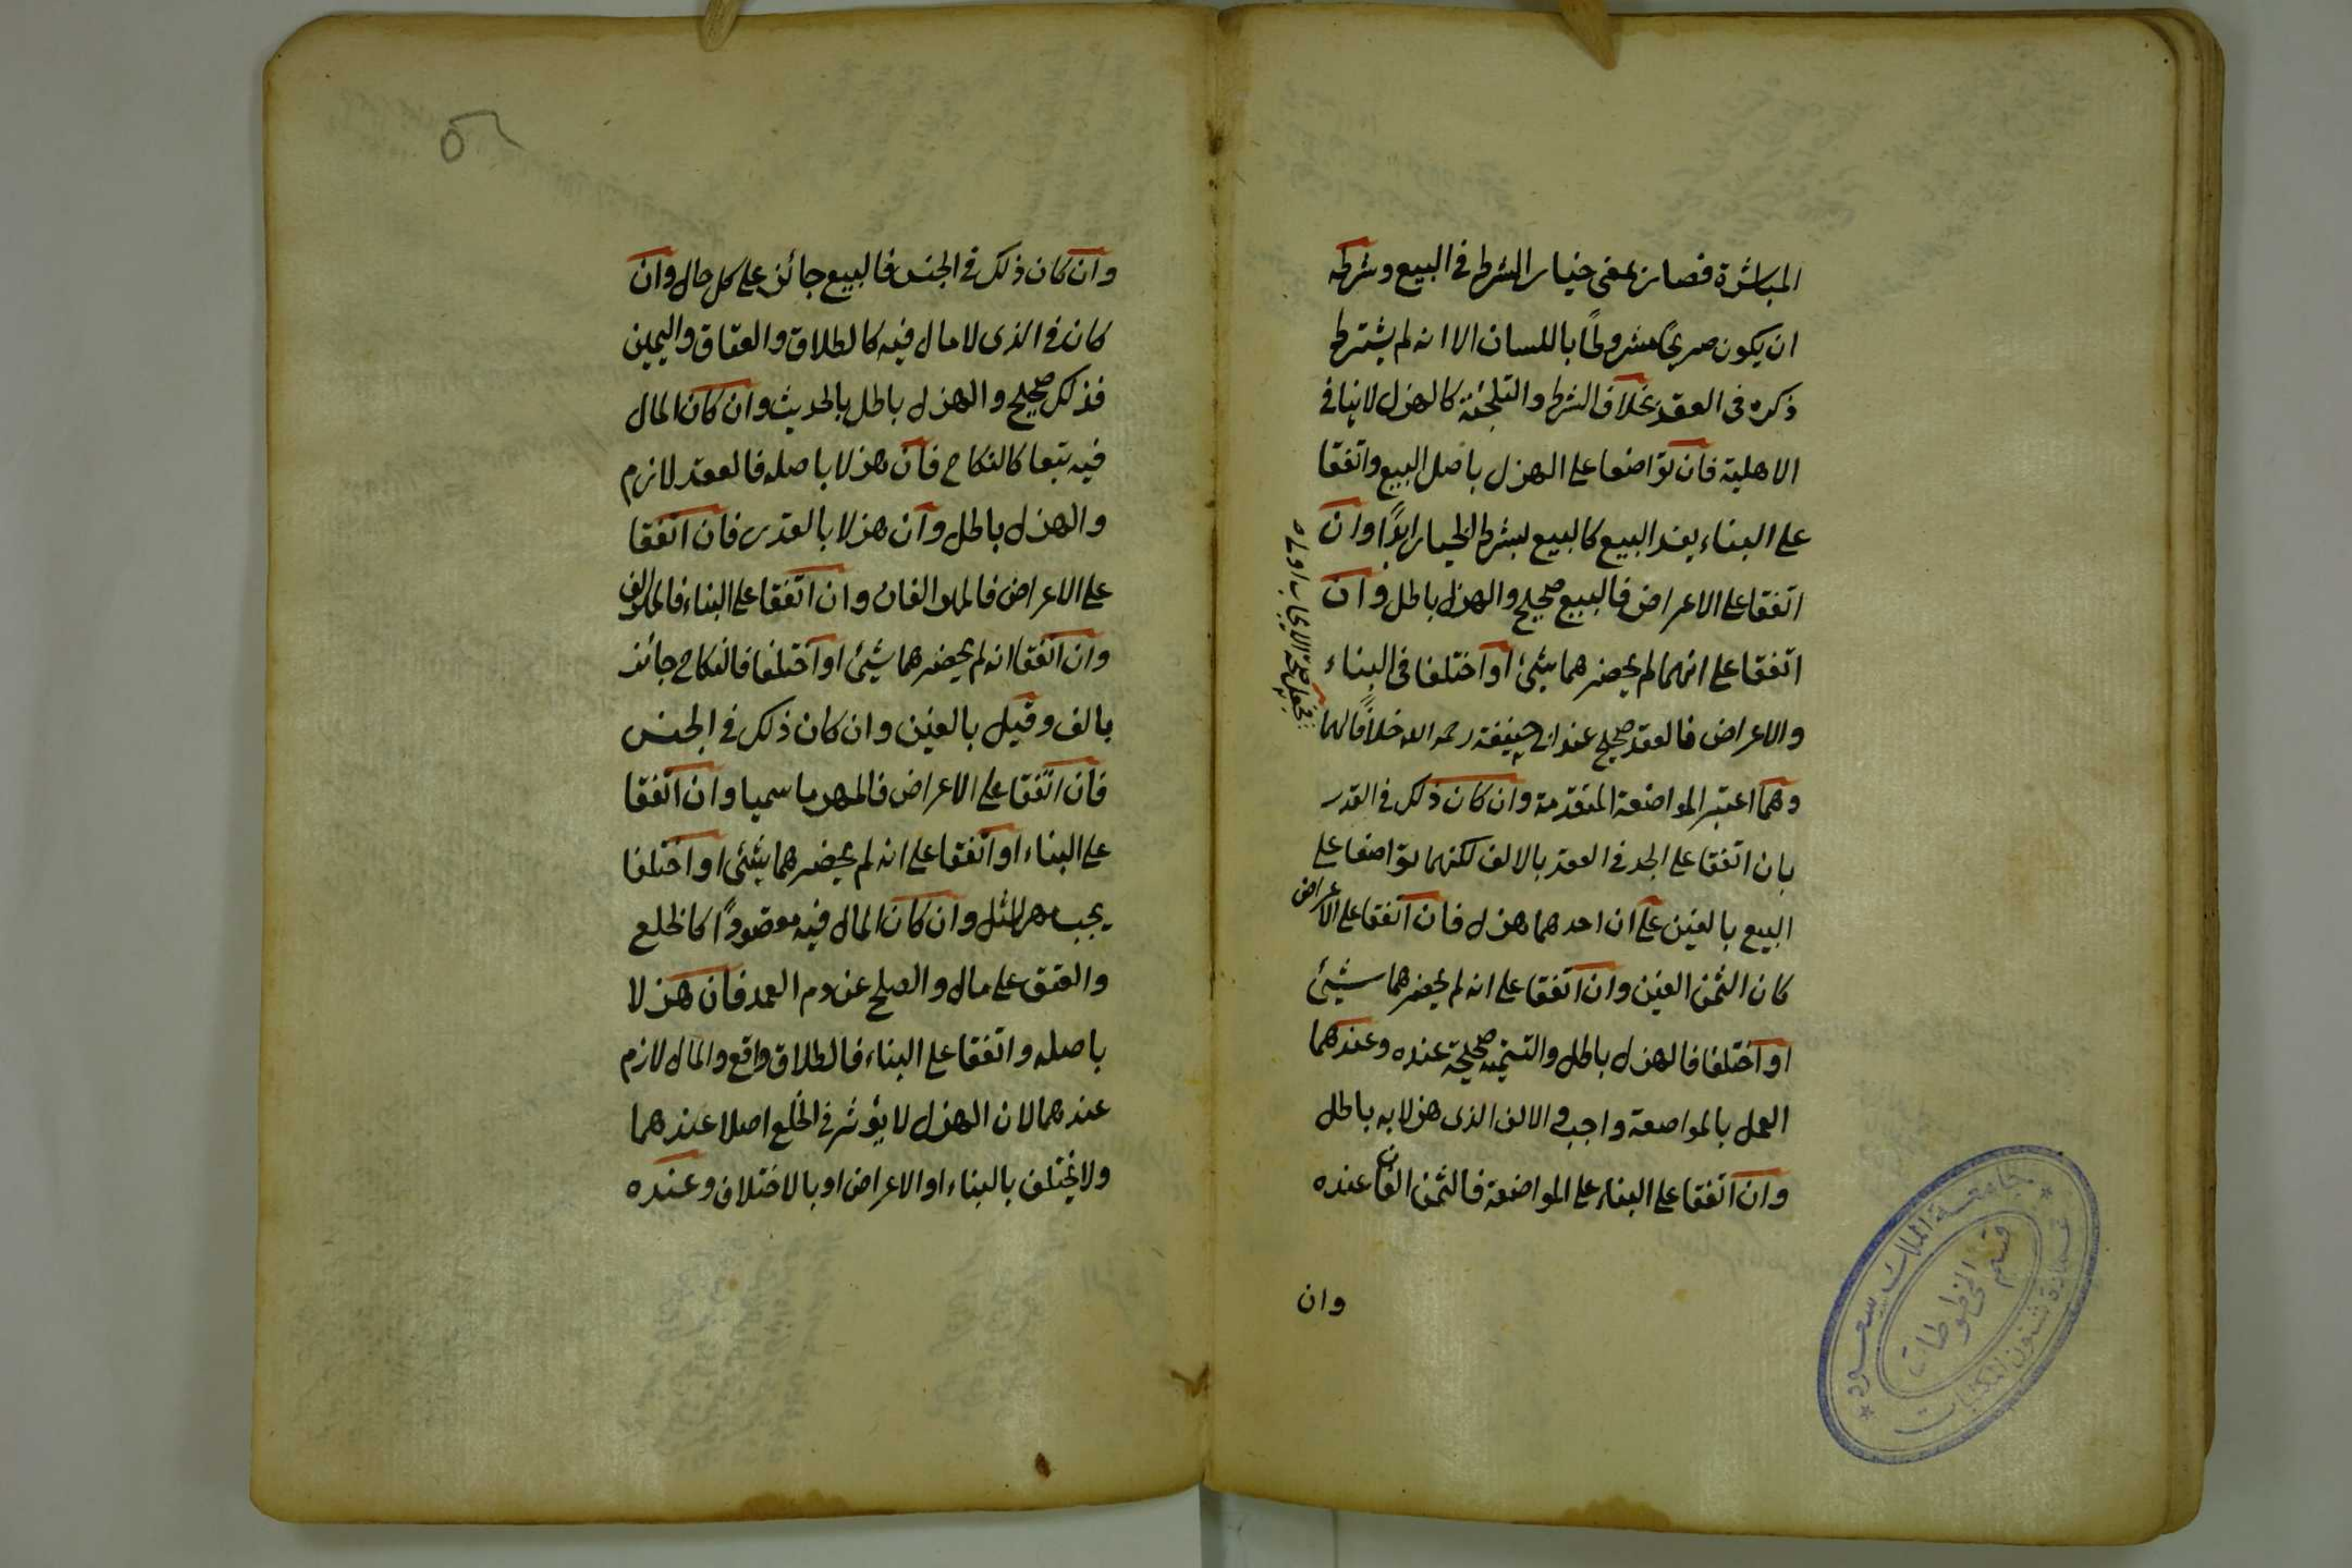 المباشرة فصار بمعنى خيار الشرط في البيع وشرطه
ان يكون صريحًا مشروطًا باللسان الا انه لم يشترط
ذكره في العقد بخلاف الشرط والتلجئة كالهزل لا ينافي
الاهلية فان تواضعا على الهزل باصل البيع واتفقا
على البناء يفسد البيع كالبيع بشرط الخيار ابدًا وان
اتفقا على الاعراض فالبيع صحيح والهزل باطل وان
اتفقا على انهما لم يحضرهما شيئ او اختلفا في البناء
والاعراض فالعقد صحيح عند ابي حنيفة رحمه الله خلافًا لهما
فجعل صحة الايجاب اولى
وهما اعتبر المواضعة المتقدمة وان كان ذلك في القدر
بان اتفقا على الجد في العقد بالالف لكنهما تواضعا على
البيع بالفين على ان احدهما هزل فان اتفقا على الاعراض
كان الثمن الفين وان اتفقا على انه لم يحضرهما شيئ
او اختلفا فالهزل باطل والتسمية صحيحة عنده وعندهما
العمل بالمواضعة واجب والالف الذى هزلا به باطل
وان اتفقا على البناء على المواضعة فالثمن الفان عنده
وان
جامعة الملك سعود
عمادة شئون المكتبات
قسم المخطوطات
٥٢
وان كان ذلك في الجنس فالبيع جائز على كل حال وان
كان في الذى لا مال فيه كالطلاق والعتاق واليمين
فذلك صحيح والهزل باطل بالحديث وان كان المال
فيه تبعا كالنكاح فان هزلا باصله فالعقد لازم
والهزل باطل وان هزلا بالقدر فان اتفقا
على الاعراض فالمهر الفان وان اتفقا على البناء فالمهر الف
وان اتفقا انه لم يحضرهما شيئ او اختلفا فالنكاح جائز
بالف وقيل بالفين وان كان ذلك في الجنس
فان اتفقا على الاعراض فالمهر ما سميا وان اتفقا
على البناء او اتفقا على انه لم يحضرهما شيئ او اختلفا
يجب مهر المثل وان كان المال فيه مقصودًا كالخلع
والعتق على مال والصلح عن دم العمد فان هزلا
باصله واتفقا على البناء فالطلاق واقع والمال لازم
عندهما لان الهزل لا يؤثر في الخلع اصلا عندهما
ولا يختلف بالبناء او الاعراض او بالاختلاف وعنده